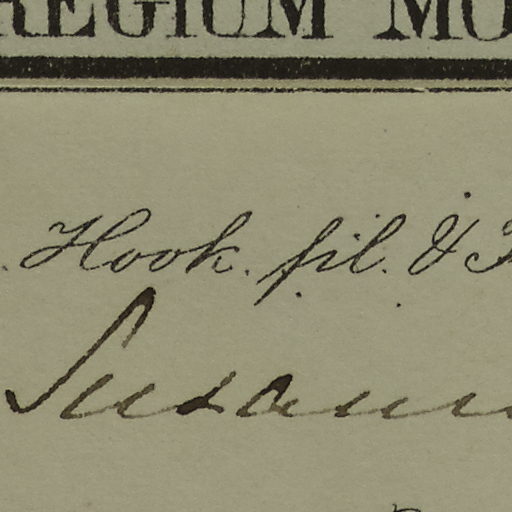 REGIUM MO
Hook. fil. & T
Susann